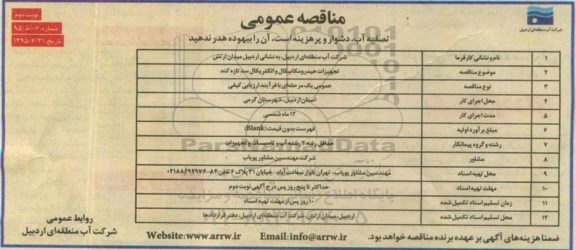 نوبت دوم
شماره: ۹۵/ط/۰۶
تاریخ: ۱۳۹۵/۰۲/۲۱
مناقصه عمومی
تصفیه آب، دشوار و پرهزینه است، آن را بیهوده هدر ندهید
شرکت آب منطقه‌ای اردبیل
۱ نام و نشانی کارفرما شرکت آب منطقه‌ای اردبیل، به نشانی اردبیل میدان ارتش
۲ موضوع مناقصه تجهیزات هیدرومکانیکال و الکتریکال سد تازه کند
۳ نوع مناقصه عمومی یک مرحله‌ای با فرآیند ارزیابی کیفی
۴ محل اجرای کار استان اردبیل، شهرستان گرمی
۵ مدت اجرای کار ۱۲ ماه شمسی
۶ مبلغ برآورد اولیه فهرست بدون قیمت (Blank)
۷ رشته و گروه پیمانکار حداقل رتبه ۴ رشته آب و تاسیسات و تجهیزات
۸ مشاور شرکت مهندسین مشاور پویاب
۹ محل تهیه اسناد مهندسین مشاور پویاب، تهران بلوار سعادت آباد - خیابان ۳۱ پلاک ۶ تلفن
۱۰ مهلت تهیه اسناد حداکثر تا پنج روز پس درج آگهی نوبت دوم
۱۱ زمان تسلیم اسناد تکمیل شده ۱۰ روز پس از مهلت تهیه اسناد
۱۲ محل تسلیم اسناد تکمیل شده اردبیل، میدان ارتش، شرکت آب منطقه‌ای اردبیل، دفتر قراردادها
ضمنا هزینه‌های آگهی بر عهده برنده مناقصه خواهد بود.
Email:info@arrw.ir
Website:www.arrw.ir
روابط عمومی
شرکت آب منطقه‌ای اردبیل